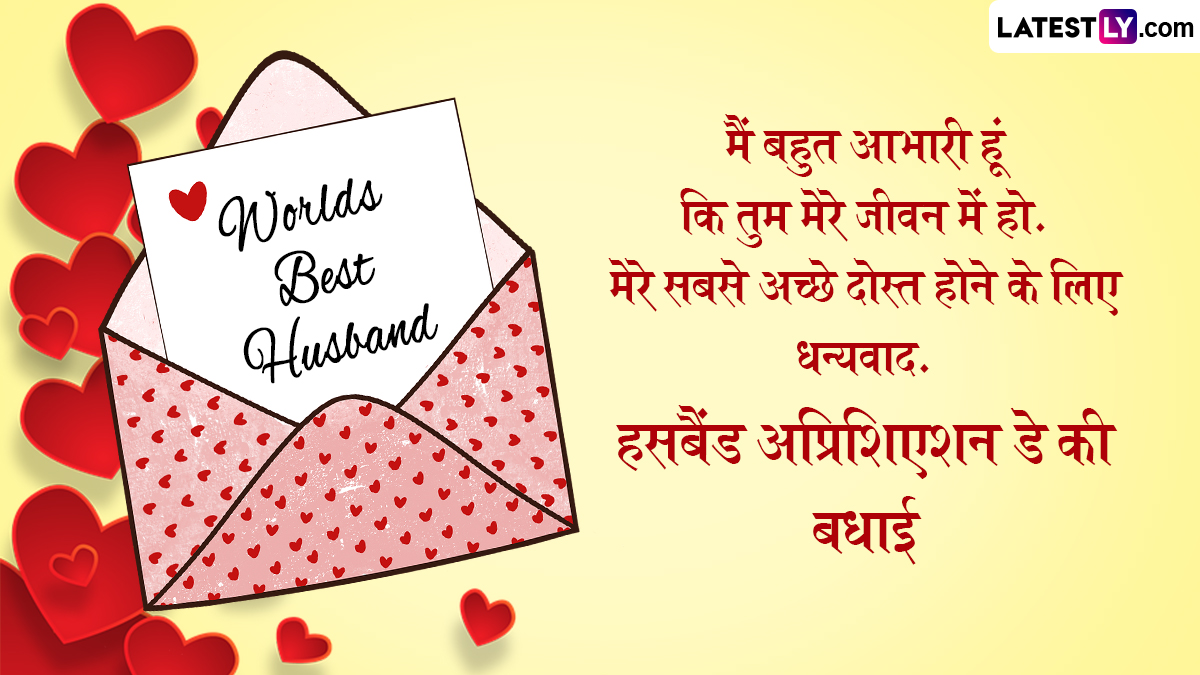 LATESTLY.com
Worlds
Best
Husband
मैं बहुत आभारी हूं
कि तुम मेरे जीवन में हो.
मेरे सबसे अच्छे दोस्त होने के लिए
धन्यवाद.
हसबैंड अप्रिशिएशन डे की
बधाई